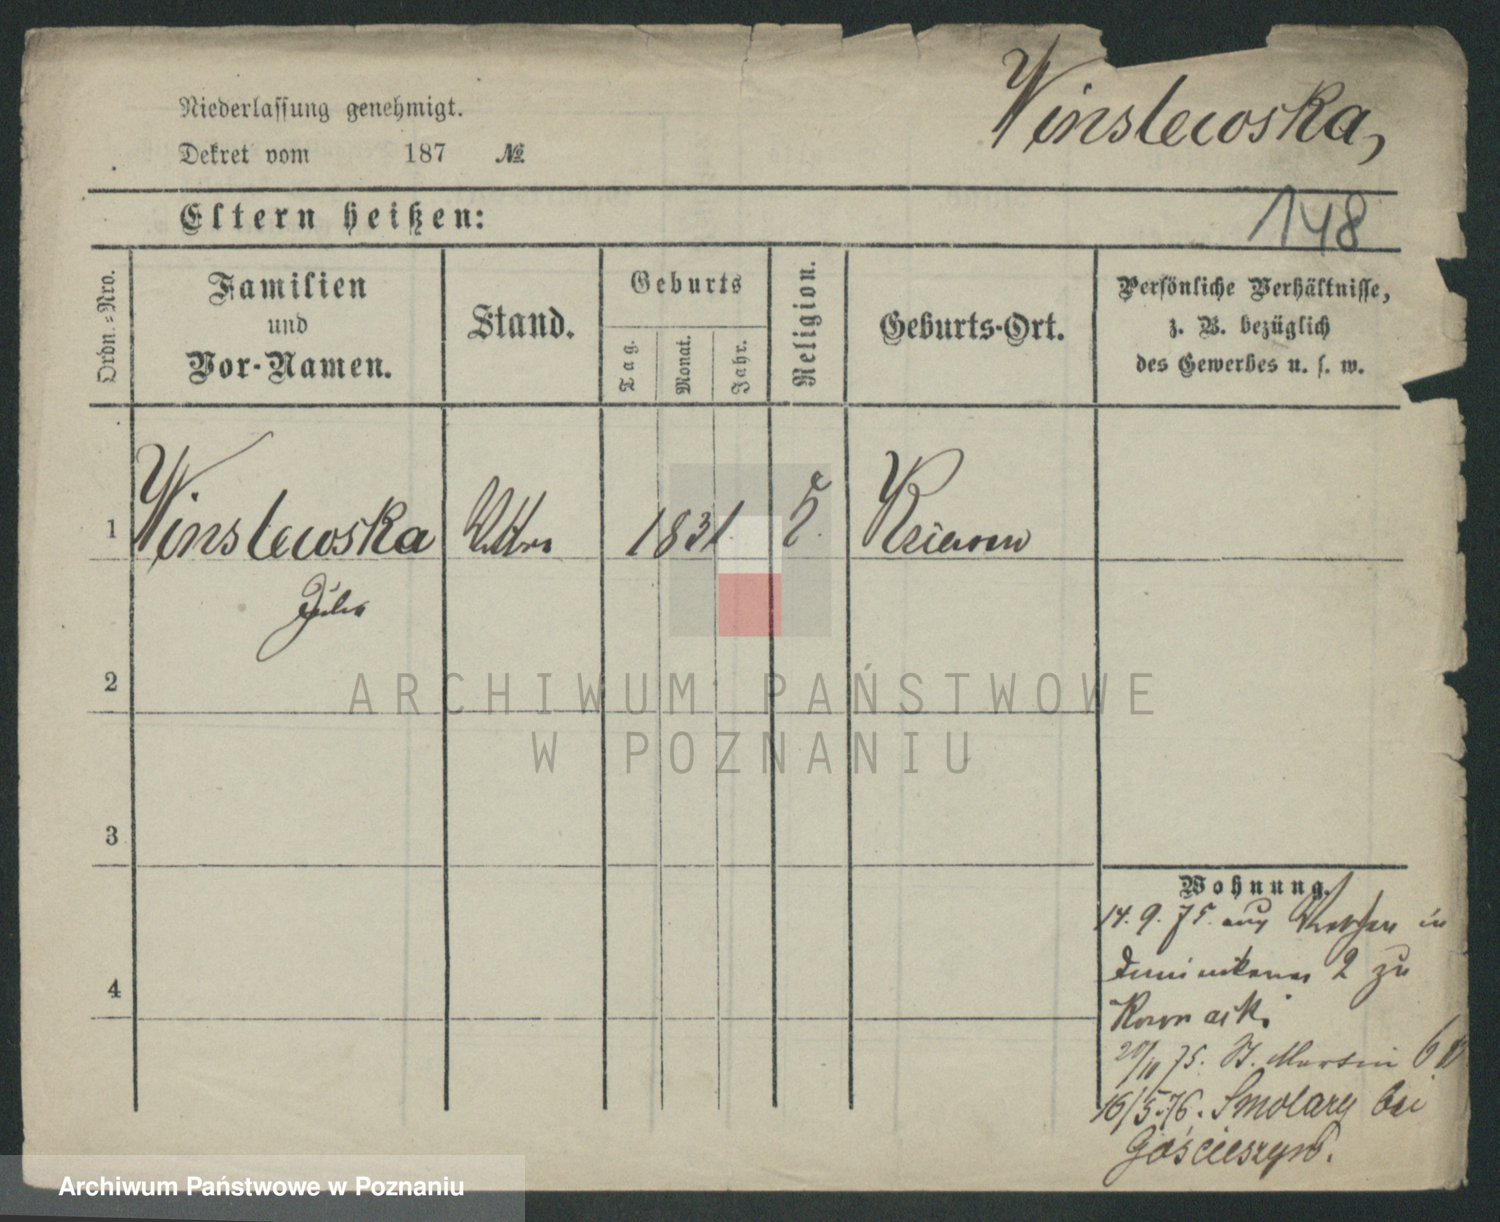 Winslewska,
Niederlassung genehmigt.
Dekret vom 187 №
148
Eltern heißen:
Ordn.-Nro.
Familien
und
Vor-Namen.
Stand.
Geburts
Tag.
Monat.
Jahr.
Religion.
Geburts-Ort.
Persönliche Verhältnisse,
z. B. bezüglich
des Gewerbes u. s. w.
1 Winslewska 1831.
2
3
4
Wohnung.
14. 9. 75. aus in
2 zu
75. St. Martin
16/5.76. Smolary bei
Gościeszyn.
ARCHIWUM PAŃSTWOWE
W POZNANIU
Archiwum Państwowe w Poznaniu